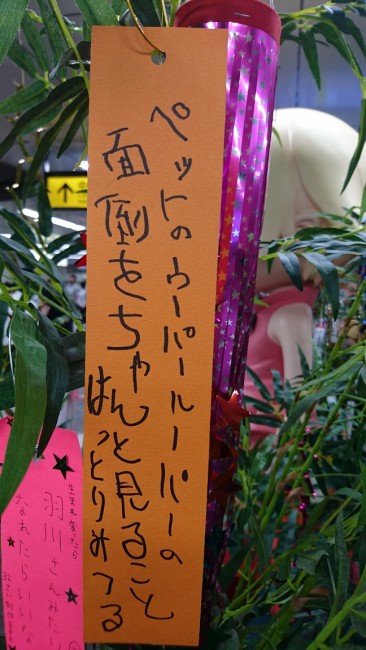 ペットのウーパールーパーの
面倒をちゃんと見ること
はっとりみつる
生まれ変わったら
羽川さんみたいに
なれたらいいな